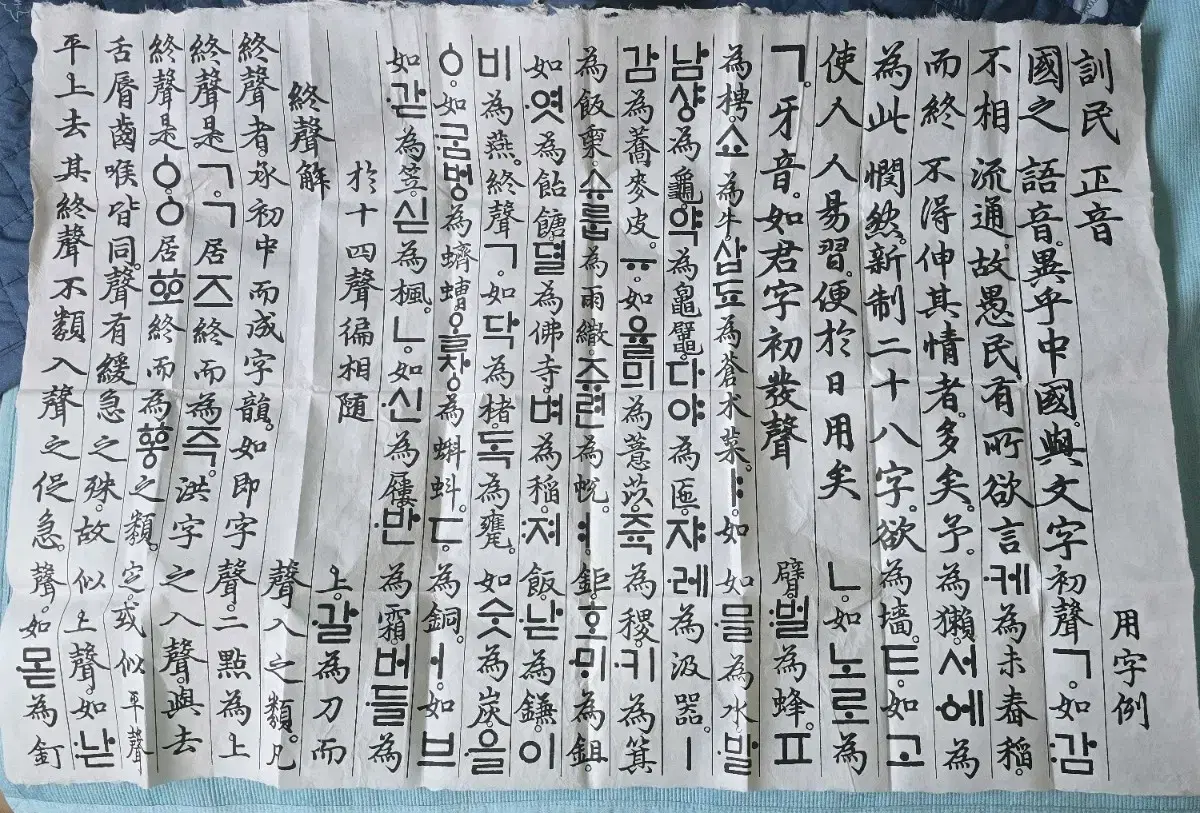 訓民 正音 用字例
國之 語音。異乎中國。與文字初聲ㄱ。如감
不相 流通。故愚民有所欲言케為未舂稻。
而終 不得伸其情者。多矣。予。為獺。서ᅌᅦ為
為此 憫然。新制二十八字。欲為墻。ㅌ如고
使人 人易習。便於日用矣 ㄴ。如노로為
ㄱ。牙音。如君字初發聲 臂。벌為蜂。ㅍ
為。쇼為牛삽됴為蒼朮菜。ㅑ。如 如믈為水。발
남샹為龜。약為鼅鼊。다야為匜。쟈레為汲器。ㅣ
감為蕎麥皮。ㅠ。如율믜為薏苡。쥭為稷。키為箕
為飯𣖄。슈룹為雨繖。쥬련為帨。ㅕ。鉅。호ᄆᆡ為鉏。
如엿為飴餹뎔為佛寺벼為稻。져飯。낟為鎌。이
비為燕。終聲ㄱ。如닥為楮。독為甕。如숫為炭。을
ㆁ。如굼벙為蠐螬올창為蝌蚪。ㄷ。為銅。ㅓ。如브
如갇為笠。싣為楓。ㄴ。如신為屨。반 為霜。버들為
於十四聲徧相隨 上。갈為刀而
終聲解 聲入之類。凡
終聲者承初中而成字韻。如即字聲。二點為上
終聲是ㄱ。ㄱ居즈終而為즉。洪字之入聲。與去
終聲是ㆁ。ㆁ居ᅘᅩ終而為ᅘᅩᇰ之類。定。或似平聲
舌脣齒喉皆同。聲有緩急之殊。故似上聲。如낟
平上去其終聲不類入聲之促急。聲。如몯為釘